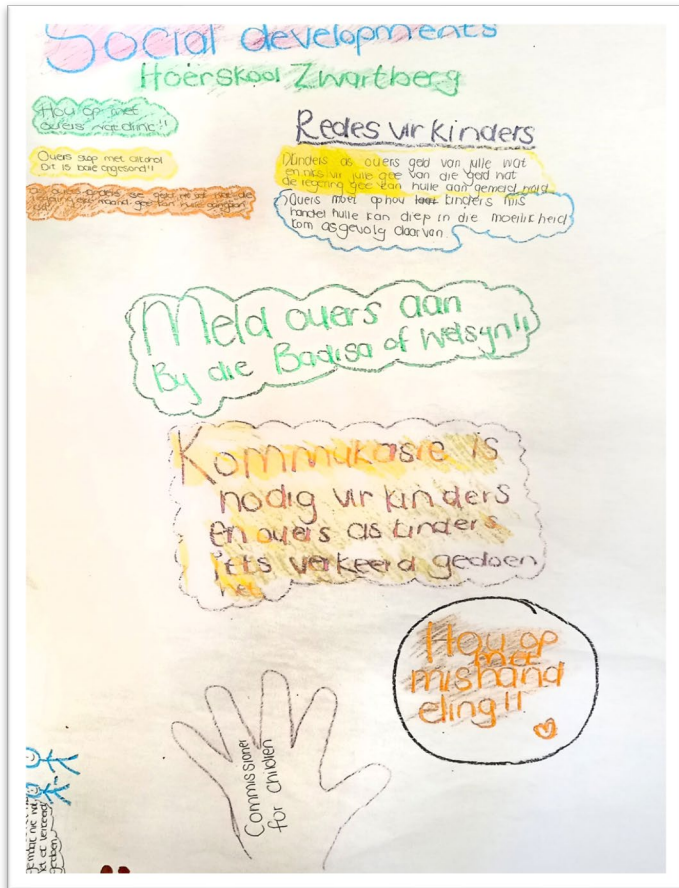 Social developments
Hoërskool Zwartberg
Hou op met
ouers
Redes vir kinders
Ouers stop met alcohol
Dit is baie ongesond!!
1) Kinders as ouers geld van julle vat
en niks vir julle gee van die geld wat
de regering gee kan hulle aan gemeld word
2) Ouers moet ophou kinders mis
handel hulle kan diep in die moeilikheid
kom asgevolg daarvan
Meld ouers aan
By die Badisa of Welsyn!!
Kommukasie is
nodig vir kinders
en ouers as kinders
iets verkeerd gedoen
het
Hou op
met
mishand
eling!!
Commissioner
for children